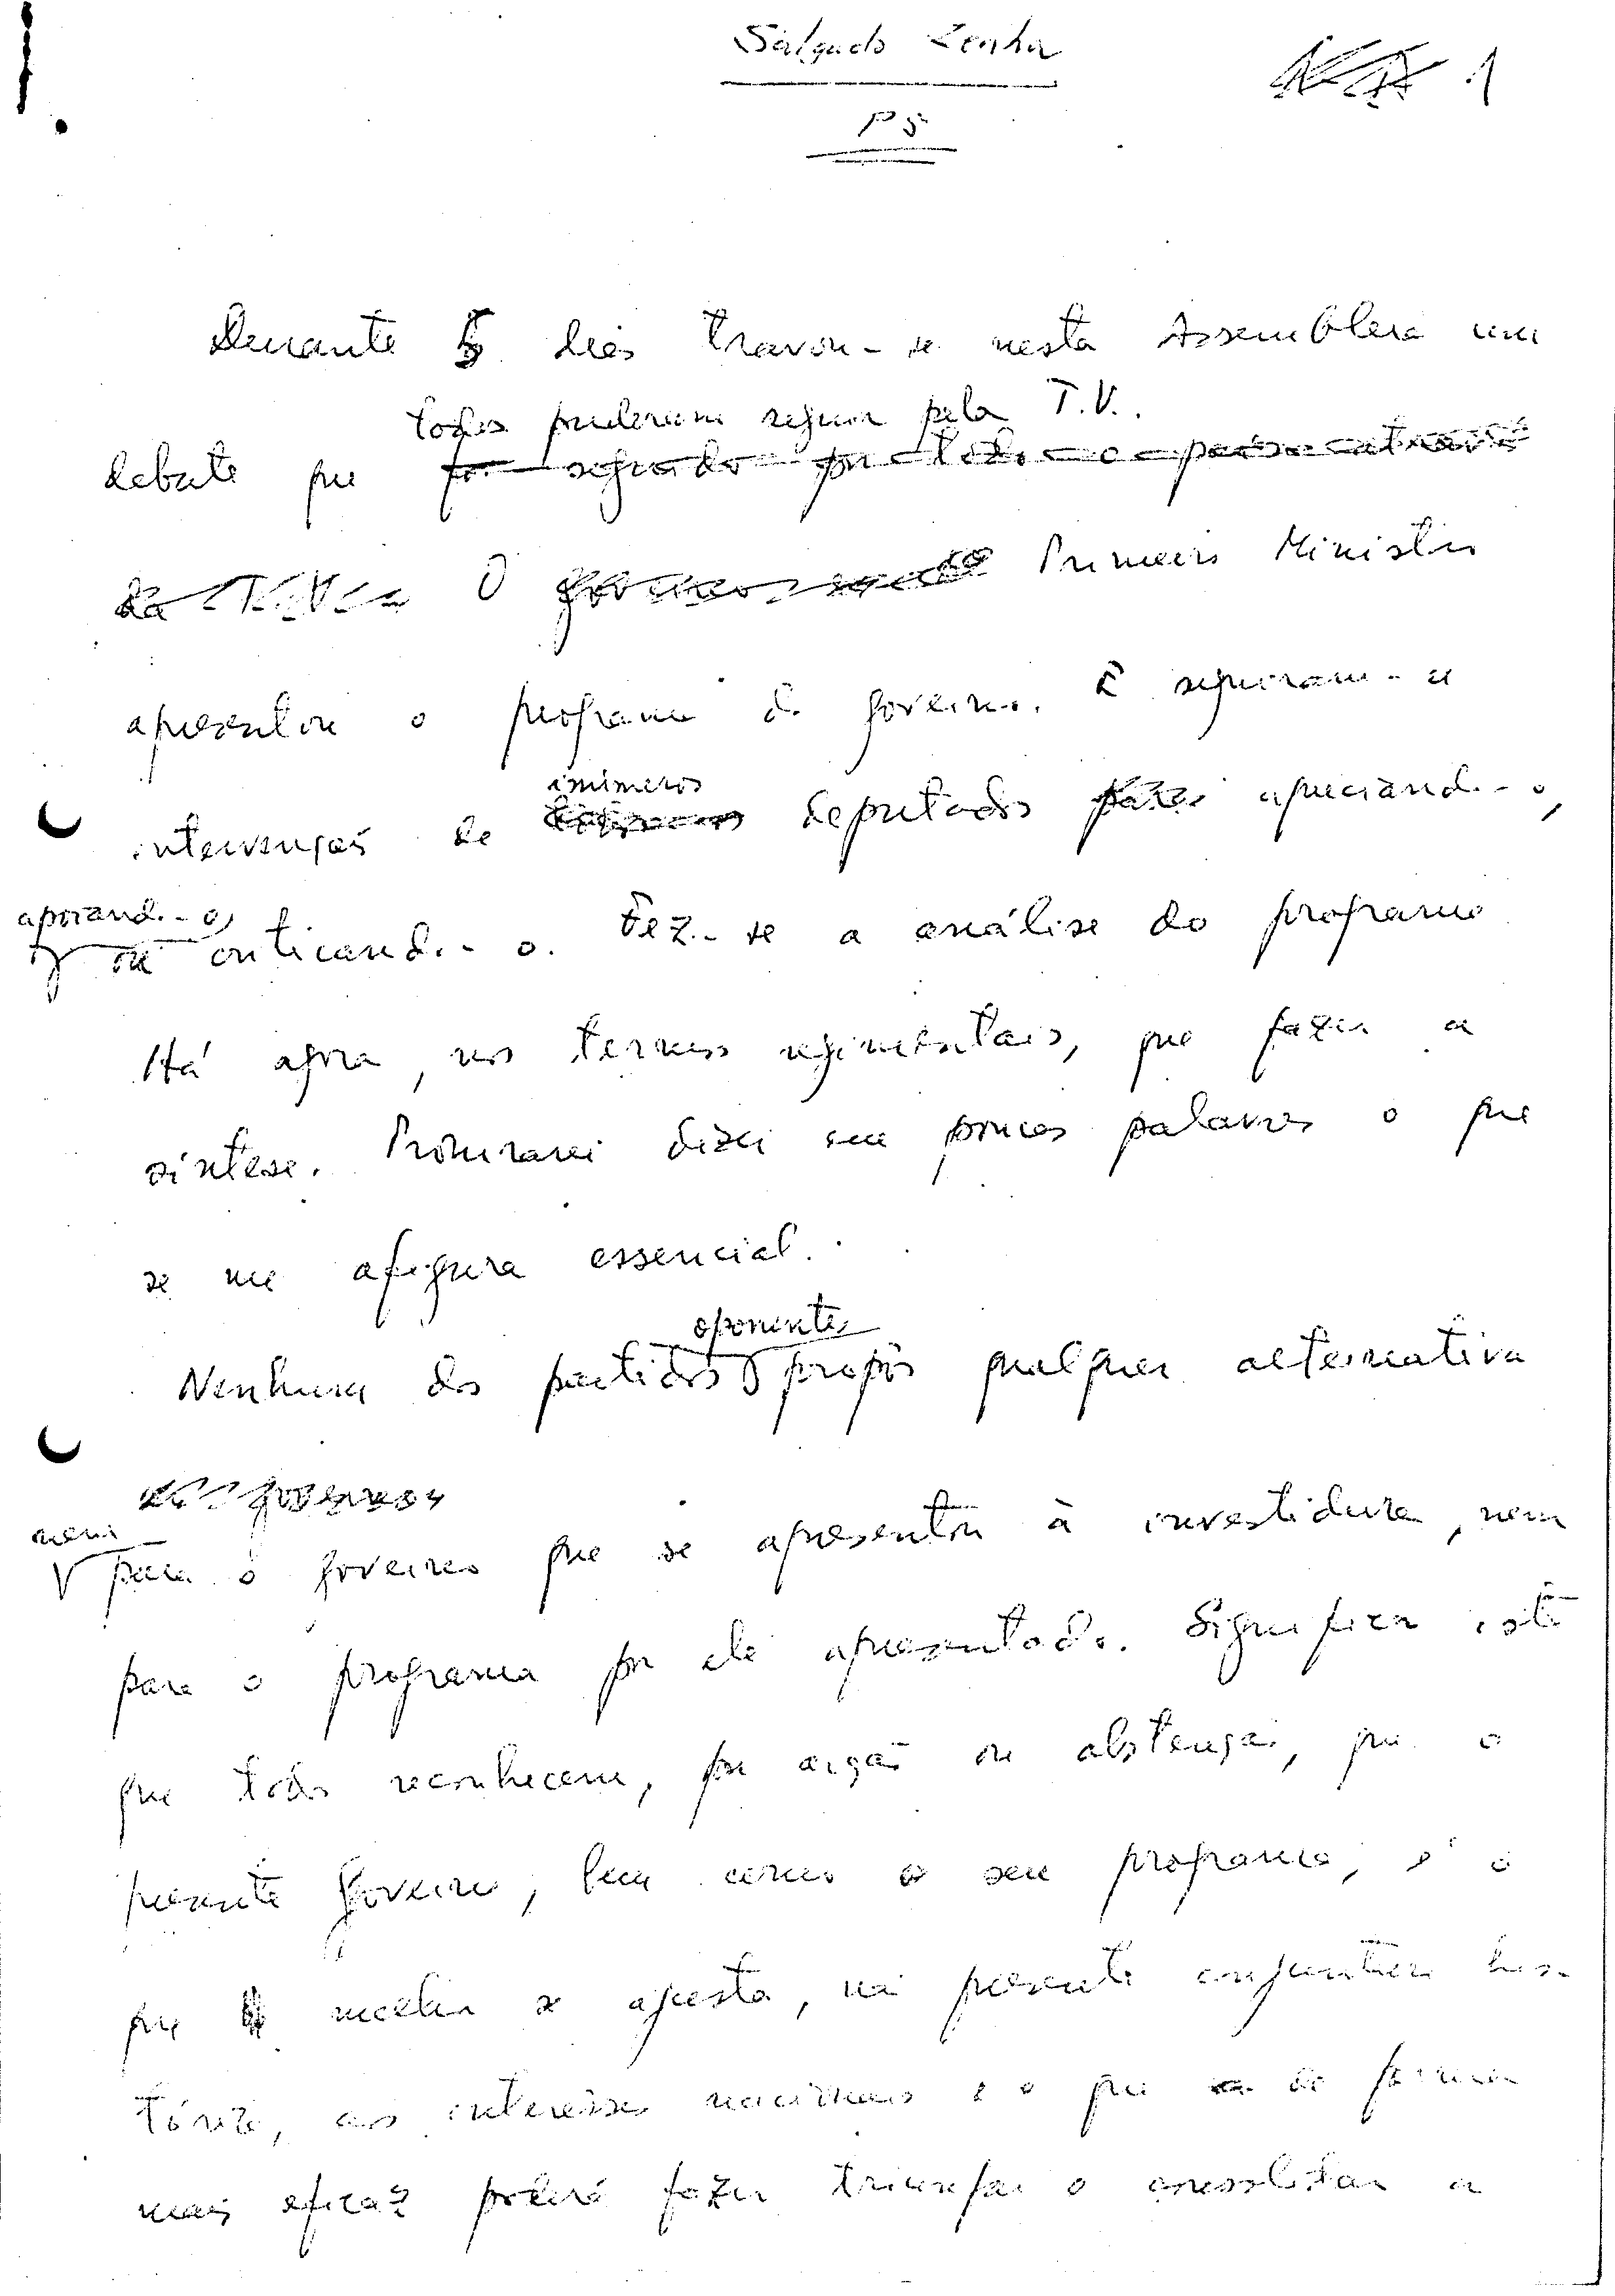 Salgado Zenha
1
PS
Durante 5 dias travou-se nesta Assembleia um
todos puderam seguir pela T.V..
debate que foi seguido por todo o país através
da T.V. O Primeiro Ministro
apresentou o programa do governo. E seguiram-se
inúmeros
intervenções de deputados apreciando-o,
apoiando-o,
ou criticando-o. Fez-se a análise do programa
Há agora, nos termos regimentais, que fazer a
síntese. Procurarei dizer em poucas palavras o que
se me afigura essencial.
oponentes
Nenhum dos partidos propôs qualquer alternativa
nem
para o governo que se apresentou à investidura, nem
para o programa por ele apresentado. Significa isto
que todos reconhecem, por acção ou abstenção, que o
presente Governo, bem como o seu programa, é o
que melhor se ajusta, na presente conjuntura his-
tórica, aos interesses nacionais e o que de forma
mais eficaz poderá fazer triunfar e consolidar a